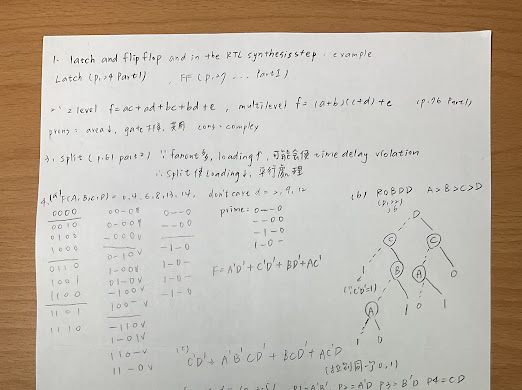 1. latch and flipflop and in the RTL synthesis step . example
Latch (p.24 Part1) FF (p.27 ... Part1)
2. 2 level f=ac+ad+bc+bd+e , multilevel f=(a+b)(c+d)+e (p.76 Part1)
pros: area↓, gate cons: complex
3. split (p.61 part2) ∵ fanout多, loading↑, 可能會使 time delay violation
∴ split 使 loading↓, 平行處理
4.(a) F(A,B,C,D)= 0,4,6,8,13,14, don't care d = 2,9,12
(b) ROBDD A>B>C>D
0000
0010
0100
1000
0110
1001
1100
1101
1110
00-0V
0-00V
-000V
0-10V
1-00V
01-0V
-100V
100-V
-110V
1-01V
110-V
11-0V
0--0
--00
-1-0
1-0-
prime: 0--0
--00
-1-0
1-0-
F=A'D'+C'D'+BD'+AC'
D
C C
1 B A 0
(∵C'D'=1)
A 1 0 1
1 0
(c) C'D'+A'B'CD'+BCD'+AC'D
P1=A'B' P2=A'D P3=B'D P4=CD